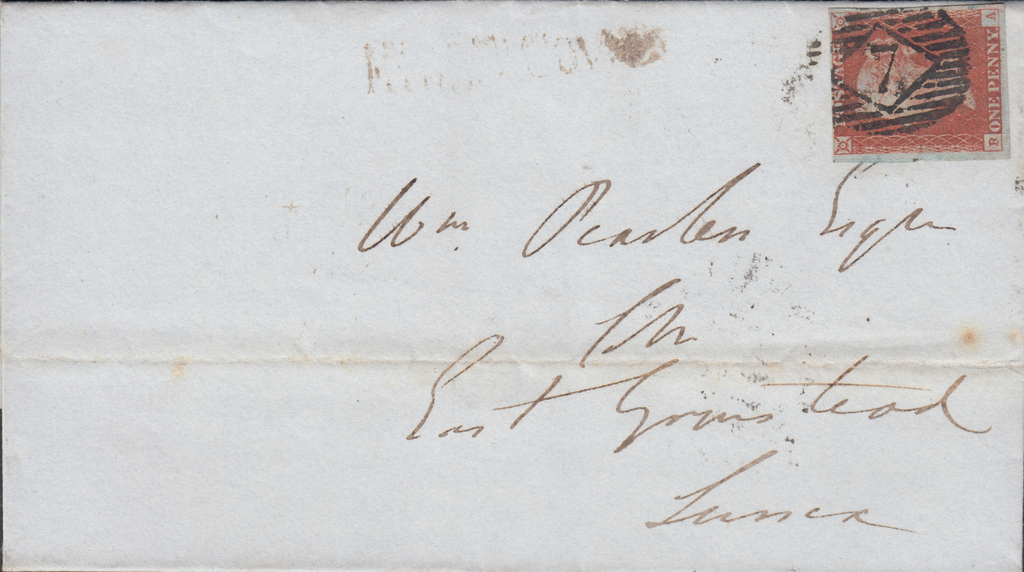 POSTAGE
7
ONE PENNY
R A
Wm Pearless Esqre
East Grinstead
Sussex